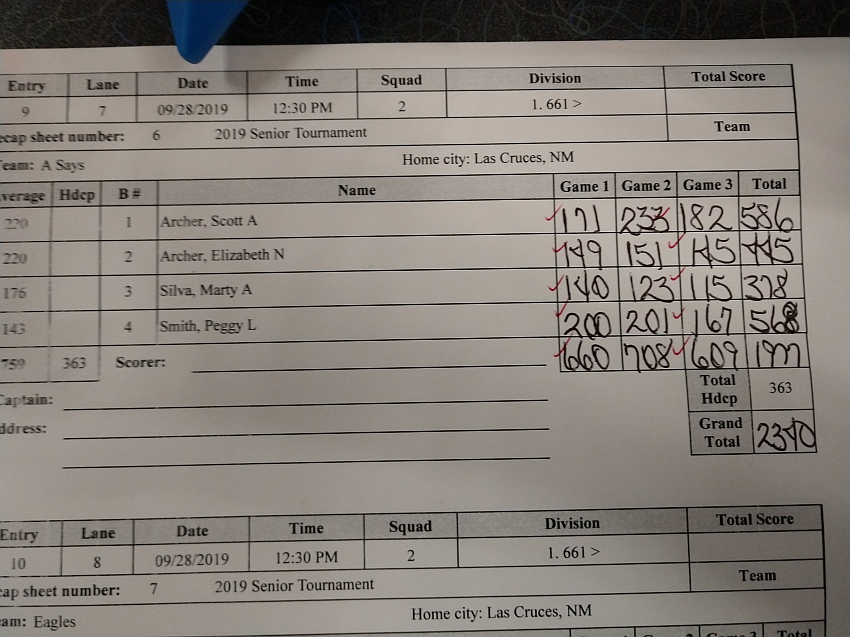 Entry Lane Date Time Squad Division Total Score
9 7 09/28/2019 12:30 PM 2 1. 661 >
ecap sheet number: 6 2019 Senior Tournament Team
eam: A Says Home city: Las Cruces, NM
verage Hdcp B # Name Game 1 Game 2 Game 3 Total
220 1 Archer, Scott A 171 233 182 586
220 2 Archer, Elizabeth N 149 151 145 445
176 3 Silva, Marty A 140 123 115 378
143 4 Smith, Peggy L 200 201 167 568
759 363 Scorer: 660 708 609 1977
Captain: Total Hdcp 363
ddress: Grand Total 2340
Entry Lane Date Time Squad Division Total Score
10 8 09/28/2019 12:30 PM 2 1. 661 >
cap sheet number: 7 2019 Senior Tournament Team
am: Eagles Home city: Las Cruces, NM
Total